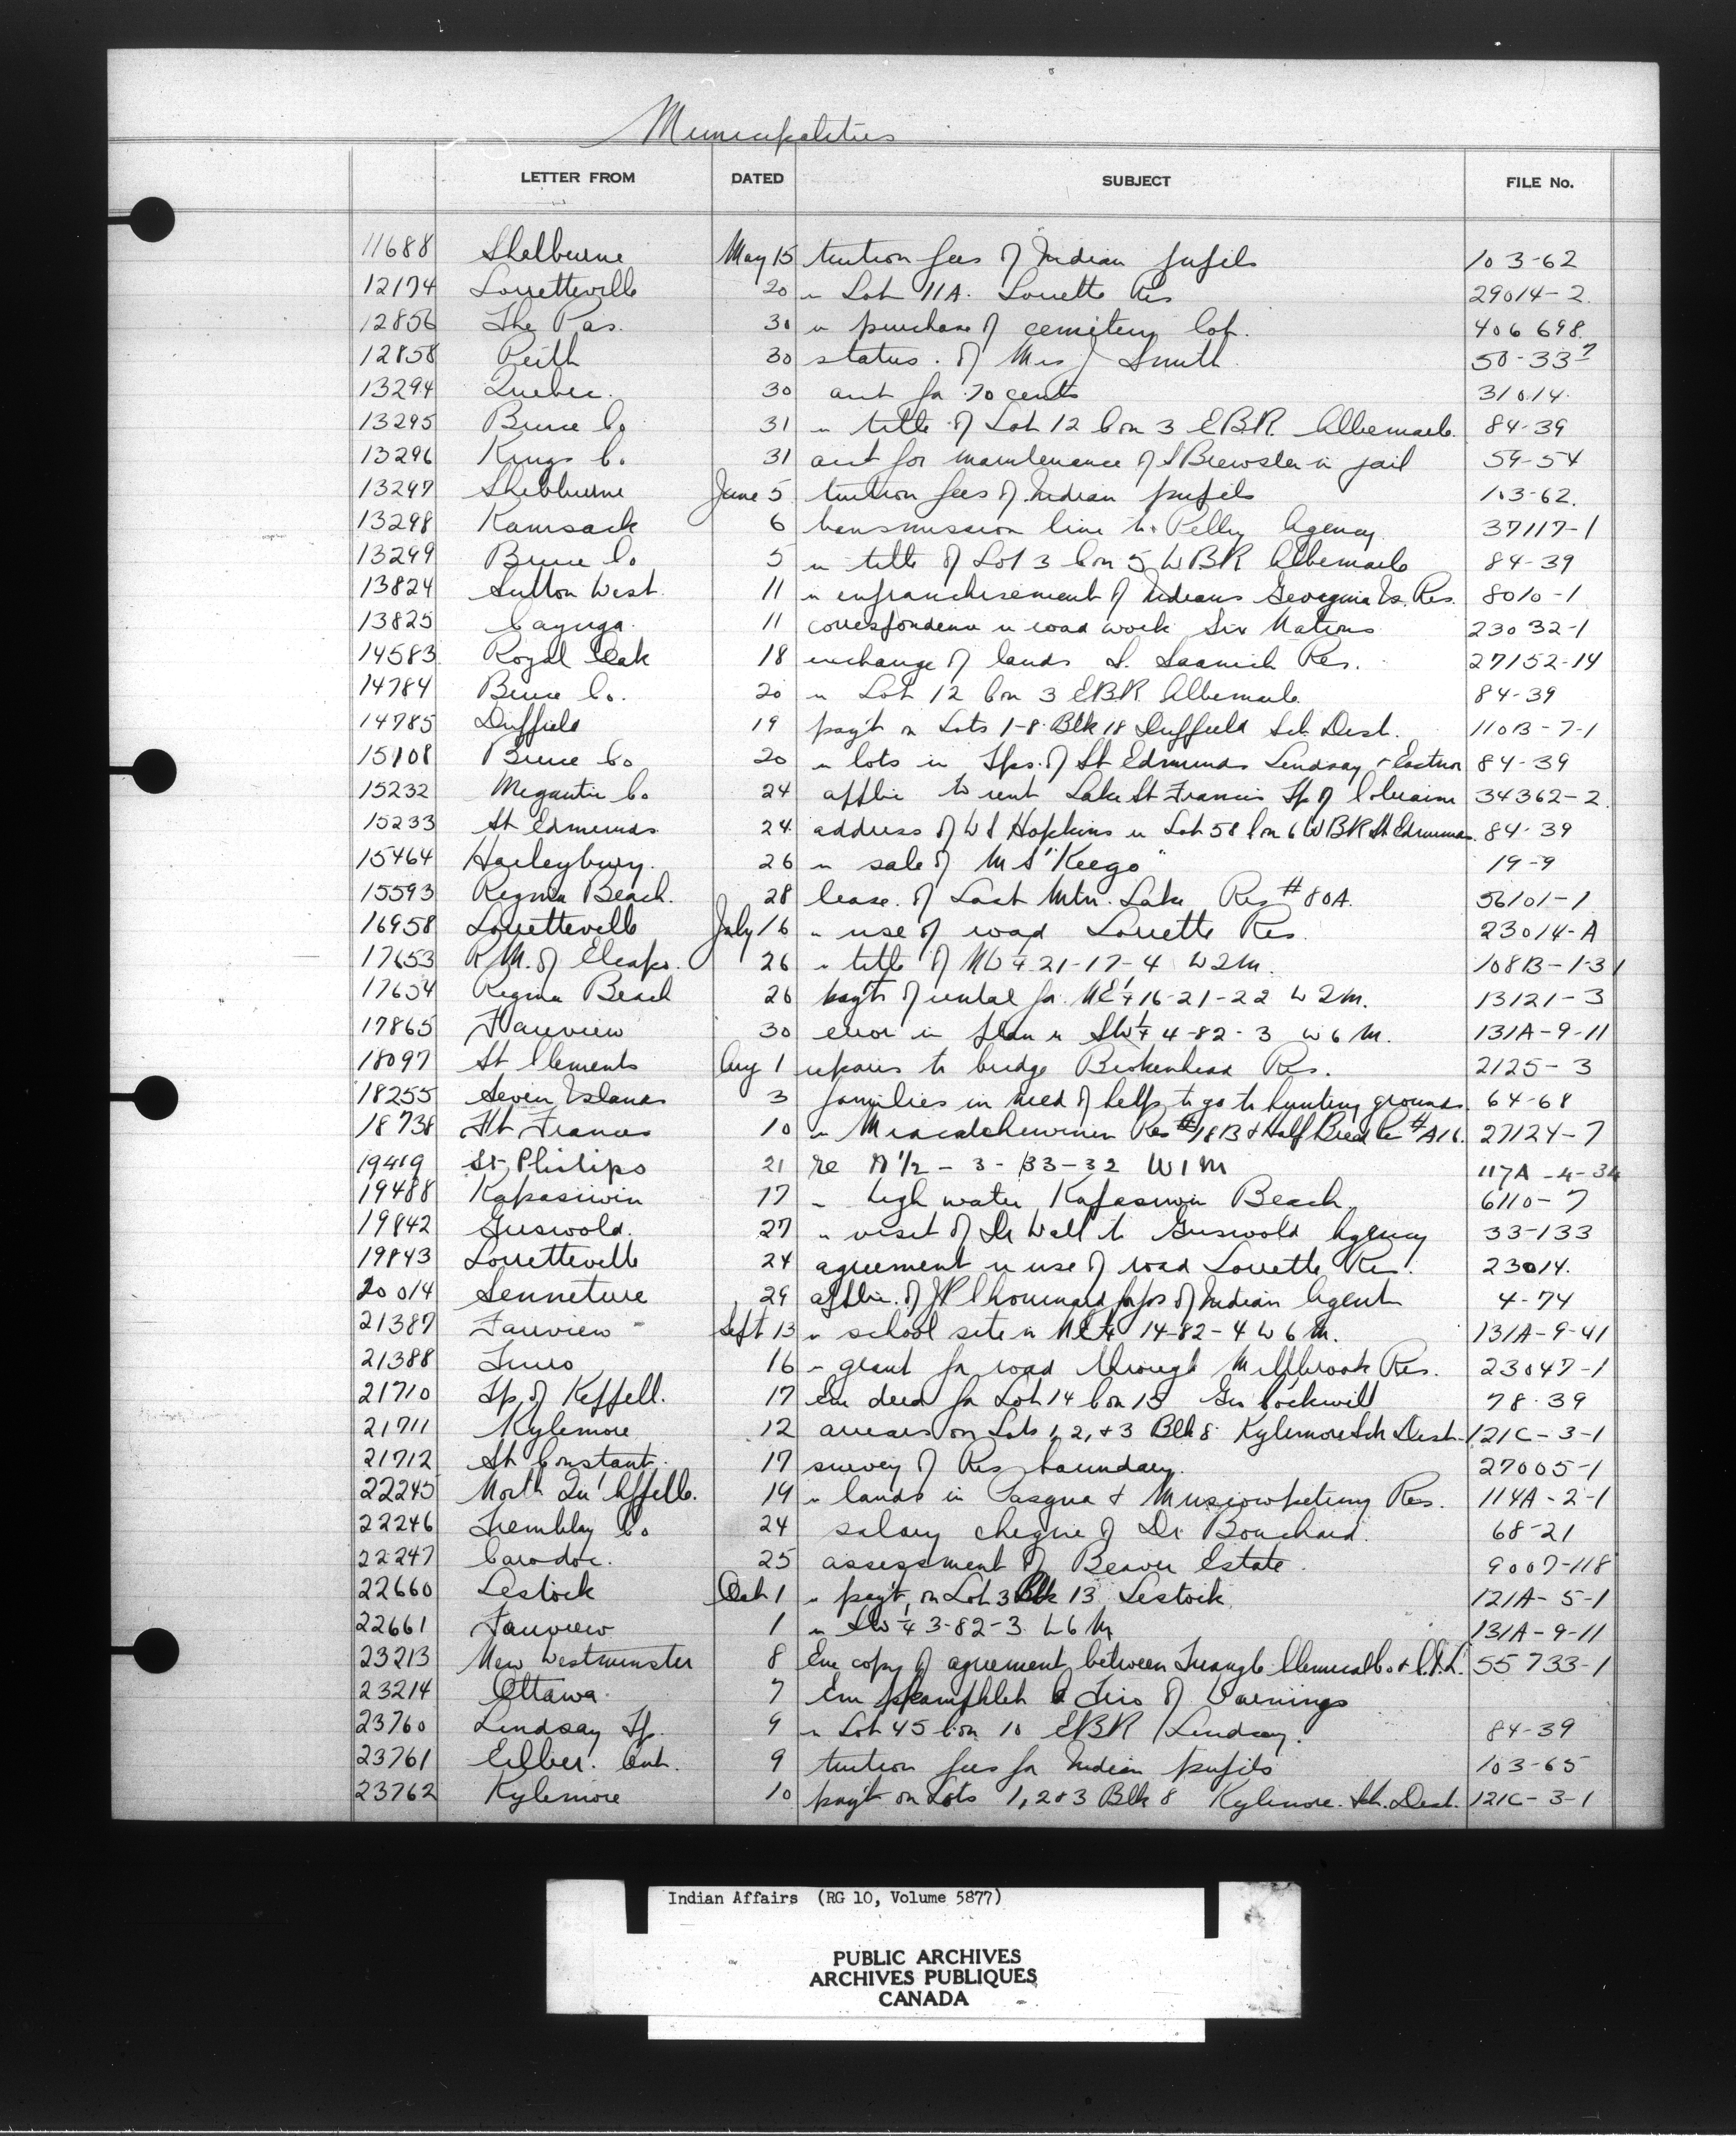 Municipalities
LETTER FROM DATED SUBJECT FILE No.
11688 Shelburne May 15 tuition fees of Indian pupils 103-62
12174 Lorretteville 20 re Lot 11A. Lorette Res 29014-2
12856 The Pas. 30 re purchase of cemetery lot. 406698
12858 Perth 30 status of Mrs J Smith 50-33
13294 Quebec. 30 acct for 70 cents 31014
13295 Bruce Co 31 re title of Lot 12 Con 3 EBR Albemarle 84-39
13296 Kings Co. 31 acct for maintenance of S Brewster in jail 59-54
13297 Shelburne June 5 tuition fees of Indian pupils 103-62.
13298 Kamsack 6 transmission line to Pelly Agency 37117-1
13299 Bruce Co 5 re title of Lot 3 Con 5 WBR Albemarle 84-39
13824 Sutton West. 11 re enfranchisement of Indians Georgina Is. Res. 8010-1
13825 Cayuga. 11 correspondence re road work Six Nations 23032-1
14583 Royal Oak 18 exchange of lands S. Saanich Res. 27152-14
14784 Bruce Co. 20 re Lot 12 Con 3 EBR Albemarle 84-39
14785 Duffield 19 pay't on Lots 1-8 Blk 18 Duffield Sch. Dist. 110B-7-1
15108 Bruce Co 20 re lots in Tps. of St Edmunds Lindsay & Eastnor 84-39
15232 Megantic Co 24 applic to rent Lake St Francis Tp of Coleraine 34362-2
15233 St Edmunds 24 address of W S Hopkins re Lot 58 Con 6 WBR St Edmunds. 84-39
15464 Haileybury. 26 re sale of M S "Keego" 19-9
15593 Regina Beach. 28 lease of Last Mtn. Lake Res # 80A. 56101-1
16958 Lorretteville July 16 re use of road Lorette Res. 23014-A
17653 R.M. of Elcapo. 26 re title of NW 1/4 21-17-4 W2M. 108B-1-31
17654 Regina Beach 26 pay't of rental for NE 1/4 16-21-22 W2M. 13121-3
17865 Fairview 30 error in plan re SW 1/4 4-82-3 W6M. 131A-9-11
18097 St Clements Aug 1 repairs to bridge Brokenhead Res. 2125-3
18255 Seven Islands 3 families in need of help to go to hunting grounds. 64-68
18738 Ft Frances 10 re Res #18B & Half Breed Res #A16. 27124-7
19419 St. Philips 21 re N 1/2 - 3 - 33-32 W1M 117A-4-34
19488 Kapasiwin 17 re high water Kapasiwin Beach 6110-7
19842 Griswold. 27 re visit of Dr Wall to Griswold Agency 33-133
19843 Lorretteville 24 agreement re use of road Lorette Res. 23014.
20014 Senneterre 29 applic. of J P Chouinard for pos of Indian Agent 4-74
21387 Fairview Sept 13 re school site in NE 1/4 14-82-4 W6M. 131A-9-41
21388 Truro 16 re grant for road through Millbrook Res. 23047-1
21710 Tp. of Keppell. 17 Enc deed for Lot 14 Con 13 Geo Cockwill 78-39
21711 Kylemore 12 arrears on Lots 1, 2, & 3 Blk 8 Kylemore Sch Dist. 121C-3-1
21712 St Constant. 17 survey of Res boundary. 27005-1
22245 North Qu'Appelle. 19 re lands in Pasqua & Muscowpetung Res. 114A-2-1
22246 Tremblay Co 24 salary cheque of Dr Bouchard. 68-21
22247 Caradoc. 25 assessment of Beaver Estate. 9007-118
22660 Lestock Oct 1 re pay't on Lot 3 Blk 13 Lestock 121A-5-1
22661 Fairview 1 re SW 1/4 3-82-3 W6M 131A-9-11
23213 New Westminster 8 Enc copy of agreement between Triangle Chemical Co & 55733-1
23214 Ottawa 7 Enc pamphlet of
23760 Lindsay Tp. 9 re Lot 45 Con 10 EBR Lindsay. 84-39
23761 Ont. 9 tuition fees for Indian pupils 103-65
23762 Kylemore 10 pay't on Lots 1, 2 & 3 Blk 8 Kylemore. Sch. Dist. 121C-3-1
Indian Affairs (RG 10, Volume 5877)
PUBLIC ARCHIVES
ARCHIVES PUBLIQUES
CANADA